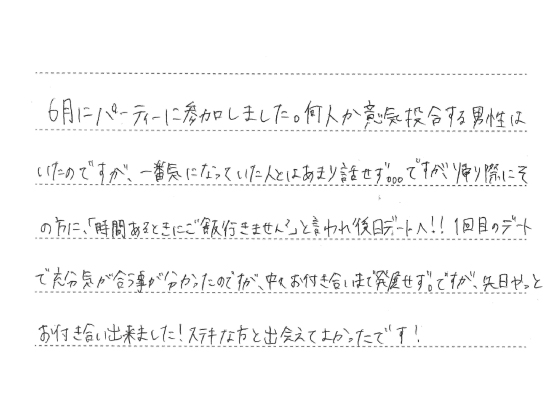 6月にパーティーに参加しました。何人か意気投合する男性は
いたのですが、一番気になっていた人とはあまり話せず。。。ですが、帰り際にそ
の方に、「時間あるときにご飯行きません?」と言われ後日デートへ!!1回目のデート
で充分気が合う事が分かったのですが、中々お付き合いまで発展せず。ですが、先日やっと
お付き合い出来ました!ステキな方と出会えてよかったです!